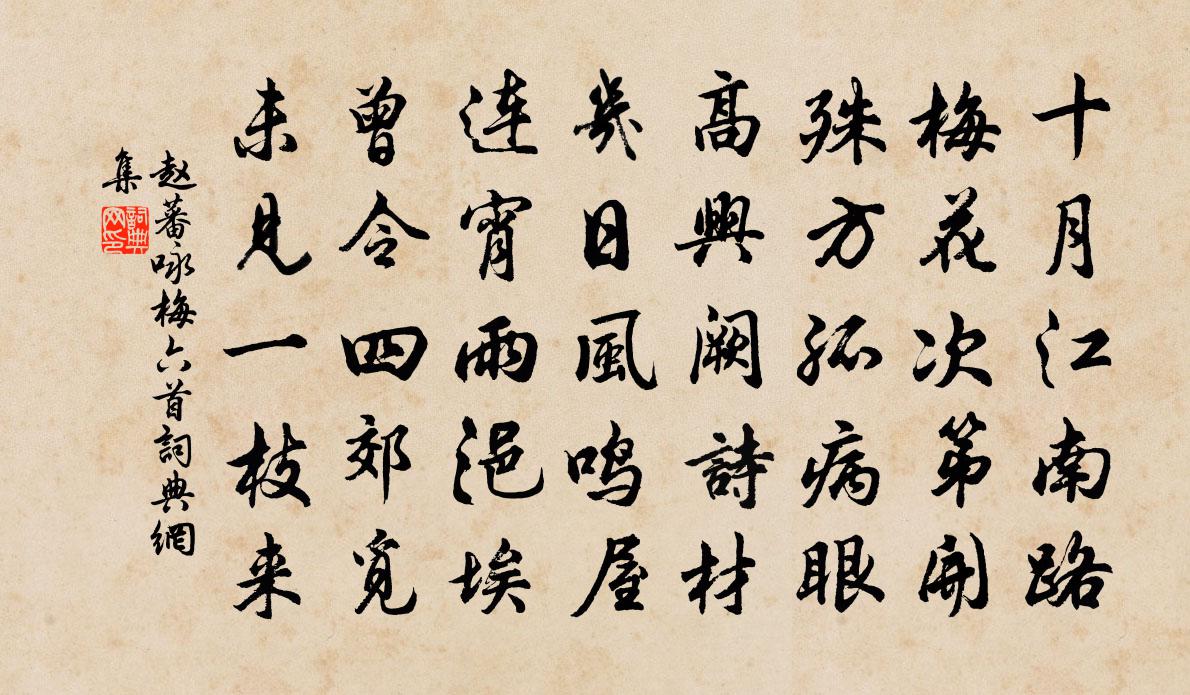 十月江南路
梅花次第開
殊方孤病眼
高興闕詩材
幾日風鸣屋
連宵雨浥埃
曾令四郊覓
未見一枝来
赵蕃咏梅六首詞典網
集
詞典
网印